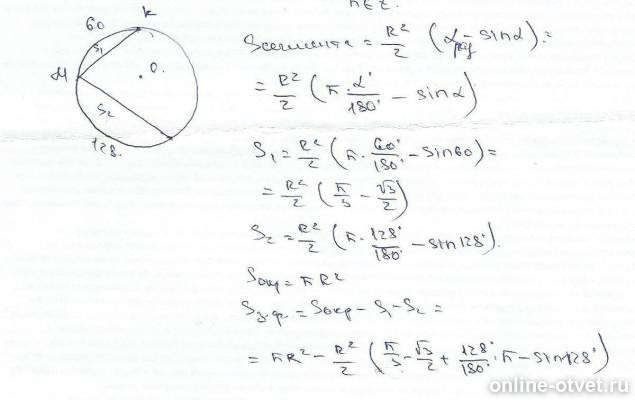 K
60
S₁
M
O.
S₂
128.
Sсегмента = R²/2 (αрад - sinα) =
= R²/2 (π · α°/180° - sinα)
S₁ = R²/2 (π · 60°/180° - sin60) =
= R²/2 (π/3 - √3/2)
S₂ = R²/2 (π · 128°/180° - sin128°).
Sокр = πR²
Sз.ф. = Sокр - S₁ - S₂ =
= πR² - R²/2 (π/3 - √3/2 + 128°/180° · π - sin128°)
online-otvet.ru